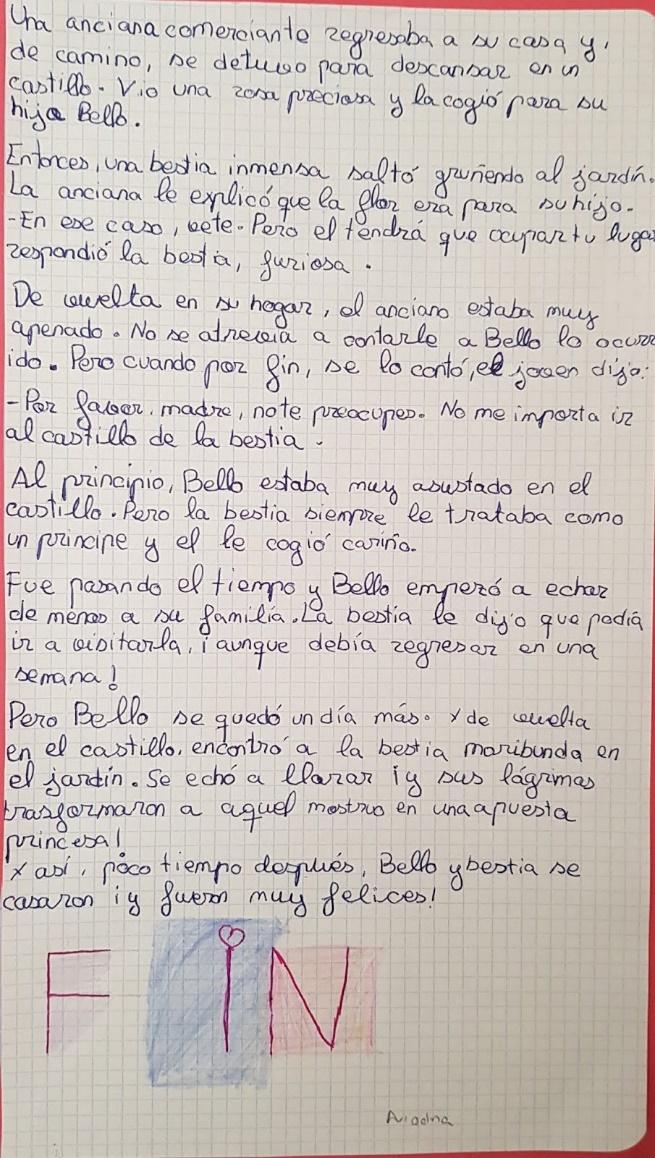 Una anciana comerciante regresaba a su casa y,
de camino, se detuvo para descansar en un
castillo. Vio una rosa preciosa y la cogió para su
hijo Bello.
Entonces, una bestia inmensa saltó gruñendo al jardín.
La anciana le explicó que la flor era para su hijo.
-En ese caso, vete. Pero el tendrá que ocupar tu lugar
respondió la bestia, furiosa.
De vuelta en su hogar, el anciano estaba muy
apenado. No se atrevia a contarle a Bello lo ocurr
ido. Pero cuando por fin, se lo contó, el joven dijo:
-Por favor, madre, no te preocupes. No me importa ir
al castillo de la bestia.
Al principio, Bello estaba muy asustado en el
castillo. Pero la bestia siempre le trataba como
un principe y el le cogió cariño.
Fue pasando el tiempo y Bello empezó a echar
de menos a su familia. La bestia le dijo que podía
ir a visitarla, ¡aunque debía regresar en una
semana!
Pero Bello se quedó un día más. Y de vuelta
en el castillo, encontró a la bestia moribunda en
el jardín. Se echó a llorar ¡y sus lágrimas
trasformaron a aquel mostruo en una apuesta
princesa!
Y así, poco tiempo después, Bello y bestia se
casaron ¡y fueron muy felices!
FIN
Ariadna